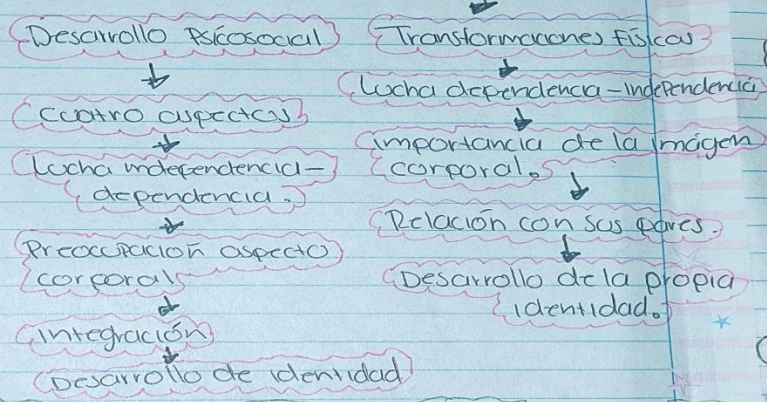 Desarrollo Psicosocial
Cuatro aspectos
Lucha independencia-
dependencia.
Preocupación aspecto
corporal
Integración
Desarrollo de identidad
Transformaciones Físicas
Lucha dependencia-independencia
importancia de la imágen
corporal.
Relación con sus pares.
Desarrollo de la propia
identidad.